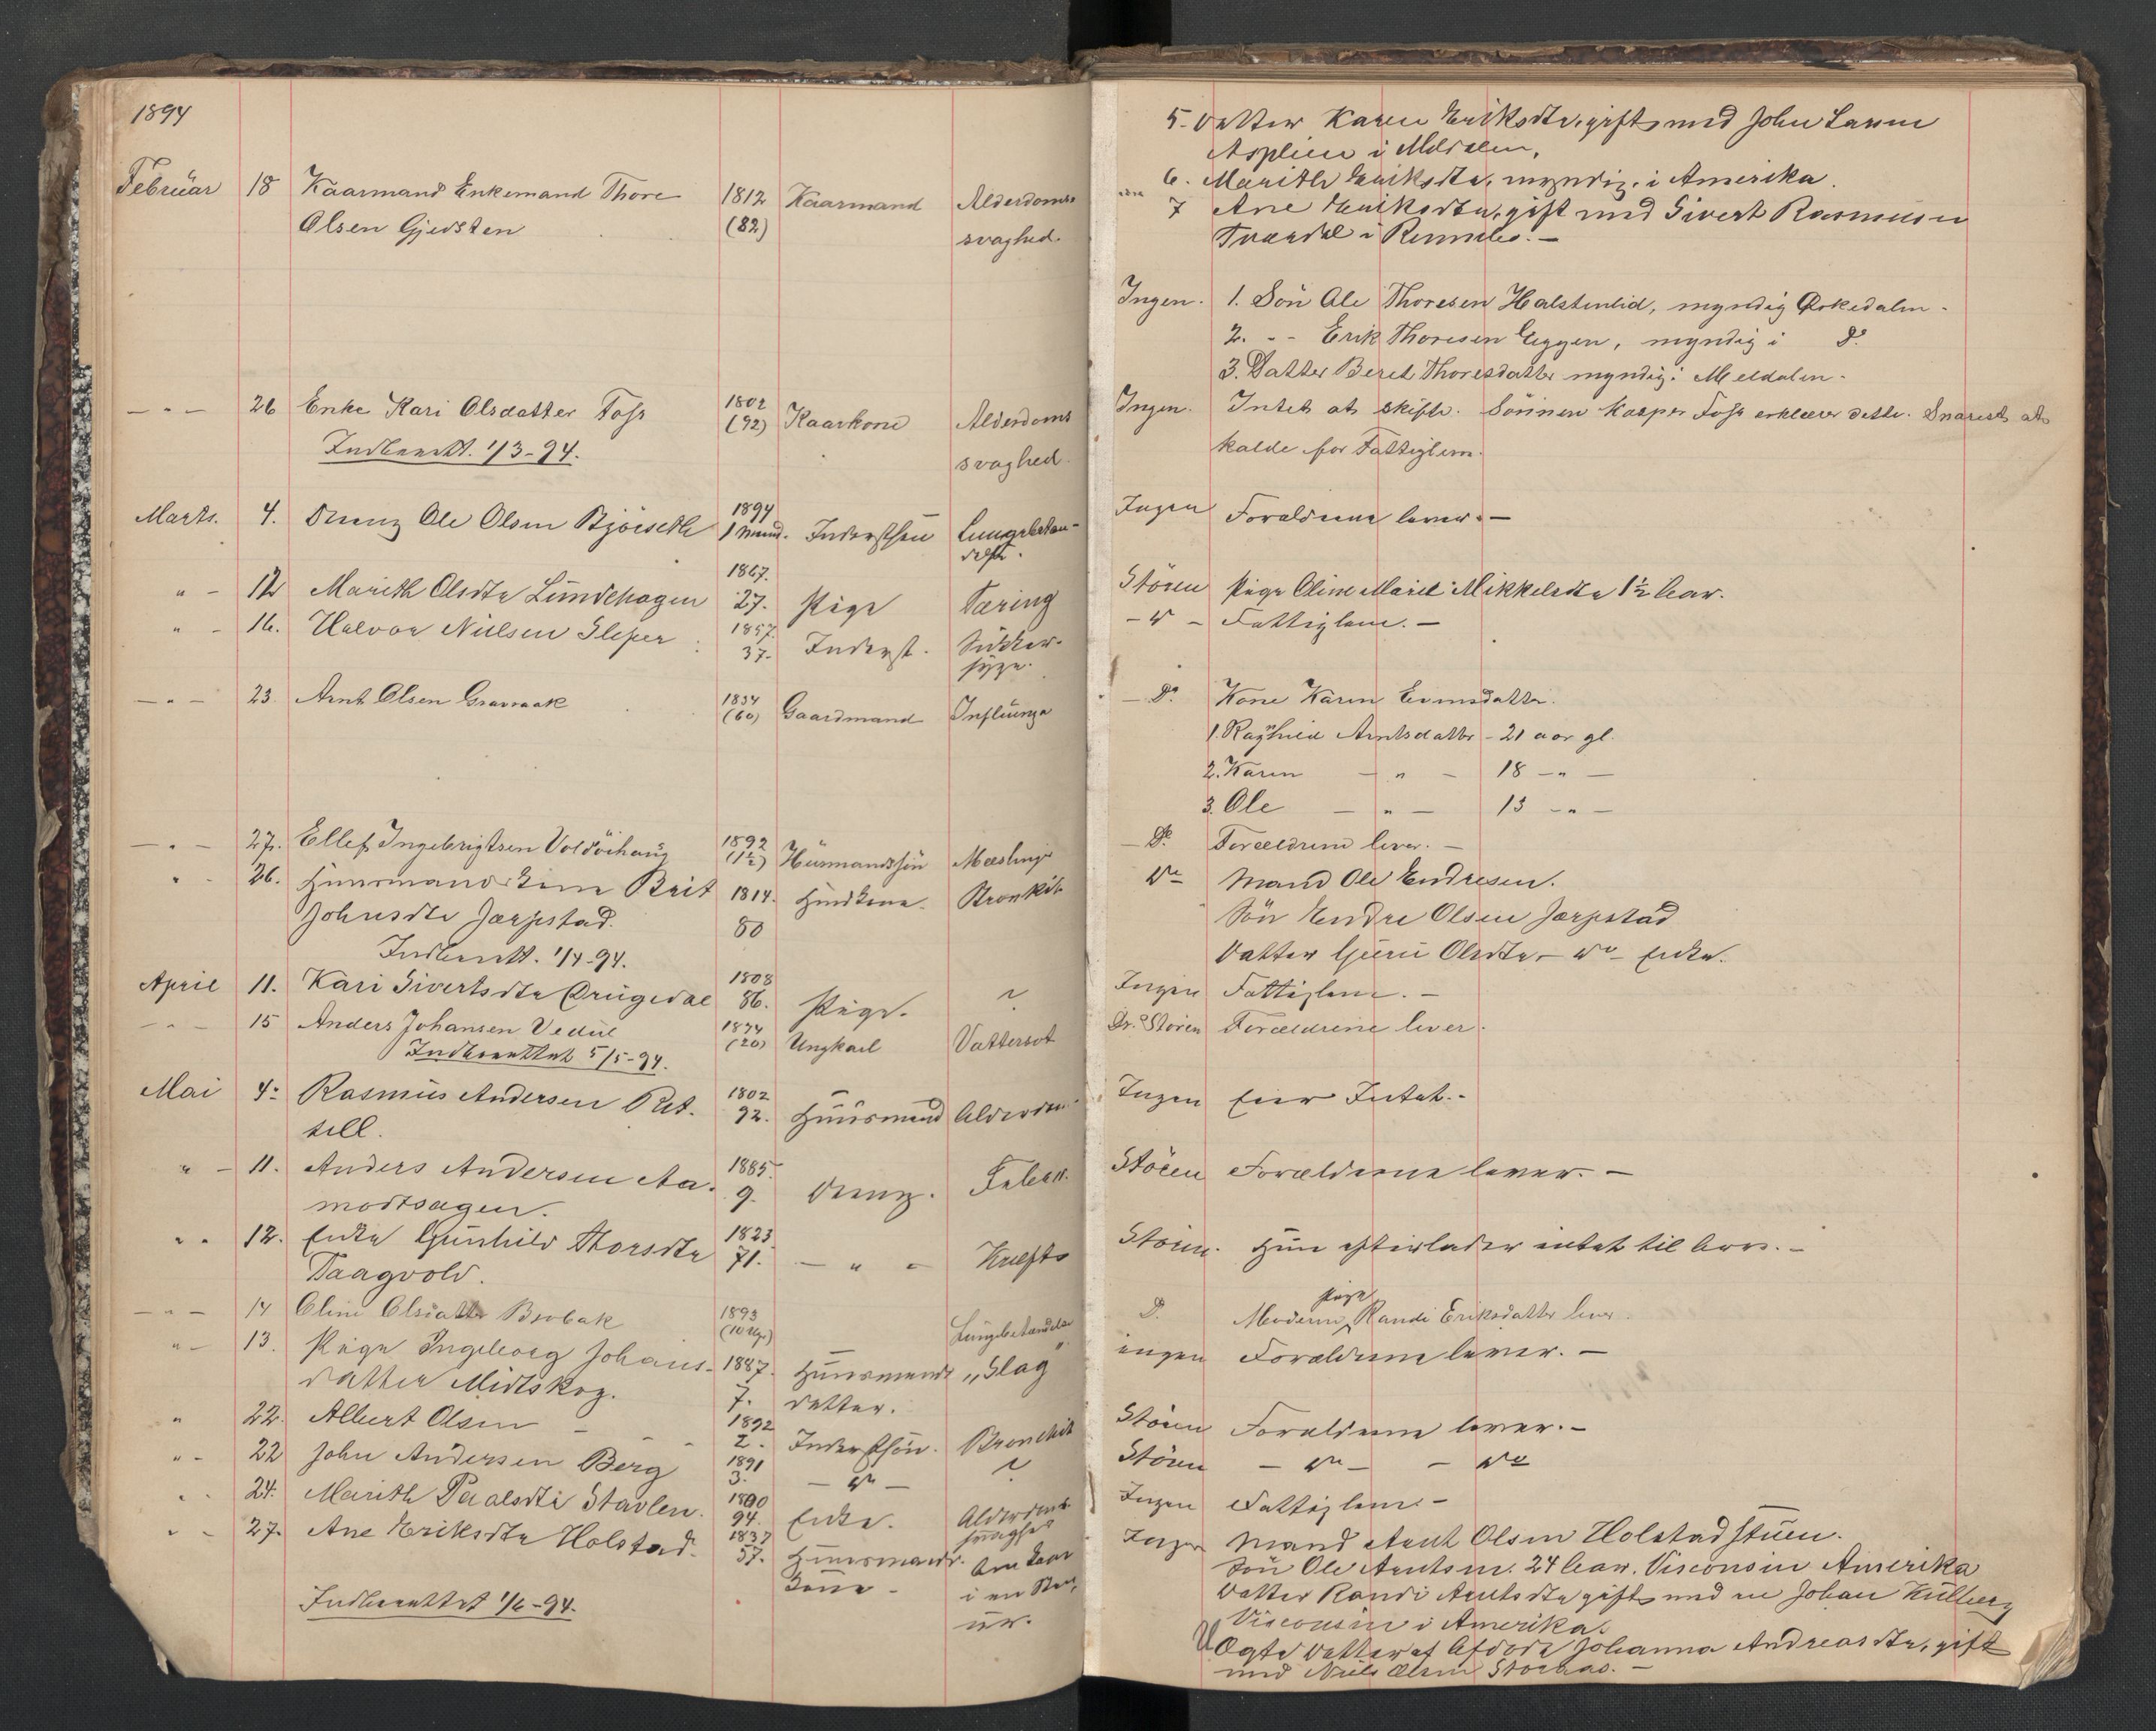 1894
Februar 18 Kaarmand Enkemand Thore 1812 Kaarmand Alderdoms
Olsen Gjersten (82) svaghed.
— " — 26 Enke Kari Olsdatter Foss 1802 (92) Kaarkone Alderdoms
Indberett. 1/3-94. svaghed.
Marts. 4. Dreng Ole Olsen Bjørseth 1894 1 Maned. Indersthsøn Lungebetæn-
delse.
" - 12 Marith Olsdtr Lundehagen 1867. 27. Pige Tæring
" - 16. Halvor Nielsen Sleper 1857. 37. Inderst. Sukker-
syge.
— " — 23 Arnt Olsen Gravraak 1834 (60) Gaardmand Influenza
— " — 27. Ellef Ingebrigtsen Voldøihaug 1892 (1½) Husmandssøn Mæslinger
" - 26. Husmandskone Brit 1814. Huskone. Bronkit
Johnsdtr Jærpstad. 80
Indberett. 1/4-94.
April 11. Kari Sivertsdtr Drugedal 1808 86. Pige. ?
— " — 15 Anders Johansen Vedul 1874 (20) Ungkarl Vattersot
Indberettet 5/5-94.
Mai 4. Rasmus Andersen Ret- 1802 92. Husmand Alderdom
sell.
" - 11. Anders Andersen Aa- 1885. 9. Dreng. Feber.
modtsagen.
" - 12. Enke Gunhild Thorsdtr 1823 71. — " — Kræft
Taagvold.
— " — 14 Oline Olsdatter Brobak 1893 (10 Uger) Lungebetændelse
" - 13. Pige Ingeborg Johans- 1887. Husmands "Slag"
datter Midtskog. 7. datter.
" 22. Albert Olsen - - - 1892 2. Indersthsøn. Bronchit
" - 22 John Andersen Berg 1891 3. — do — ?
" - 24. Marith Paalsdtr Stavlen. 1800 94. Enke. Alderdoms
svaghed
" - 27. Ane Eriksdtr Holstad. 1837 57. Husmands-
kone -
i en
Indberettet 1/6-94.
5. Datter Karen Eriksdtr, gift med John Larsen
Asplien i Meldalen,
6. Marith Eriksdtr, myndig, i Amerika.
7 Ane Eriksdtr, gift med Sivert Rasmusen
i Rennebo. —
Ingen. 1. Søn Ole Thoresen Halstenlid, myndig Orkedalen -
2. - - Erik Thoresen Eggen, myndig i Do.
3. Datter Beret Thoresdatter myndig i Meldalen -
Ingen. Intet at skifte. Sønnen Kasper Foss erklærer dette. Snarest at
kalde for Fattiglem.
Ingen Forældrene lever. —
Støren Pige Oline Marit Mikkelsdtr 1½ Aar.
- do - Fattiglem. —
— Do. Kone Karen Evensdatter.
1. Ragnhild Arntsdatter - 21 aar gl.
2. Karen — " — 18 — " —
3. Ole — " — 13 — " —
— Do. Forældrene lever. —
Do — Mand Ole Endresen.
Søn Endre Olsen Jærpstad
Datter Guru Olsdtr — do — Enke.
Ingen Fattiglem. —
Dr. Støren Forældrene lever.
Ingen Eier Intet. -
Støren Forældrene lever. —
Støren. Hun efterlader intet til Arv. —
Pige
D. Moderen Randi Eriksdatter lever.
ingen Forældrene lever. —
Støren Forældrene lever. —
Støren — do — — do
Ingen Fattiglem. —
Ingen Mand Arnt Olsen Holstadstuen.
Søn Ole Arntsen. 24 Aar. Visconsin Amerika
Datter Randi Arntsdtr gift med en Johan Kulberg
Visconsin i Amerika.
Uægte Datter af Afdøde Johanna Andreasdtr, gift
med Niels Olsen